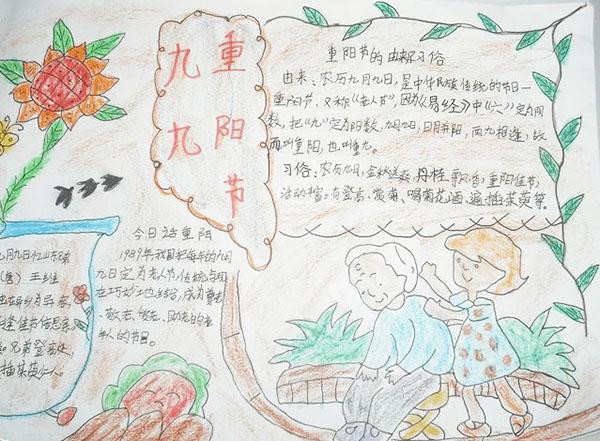 重阳节
九九
重阳节的由来和习俗
由来：农历九月九日，是中华民族传统的节日—
重阳节，又称《老人节》，因为《易经》中《六》定为阴
数，把《九》定为阳数，九月九日，日月并阳，两九相连，故
而叫重阳，也叫重九。
习俗：农历九日，金秋送爽，丹桂飘香，重阳佳节，
活动丰富。有登高、赏菊、喝菊花酒、遍插茱萸等。
今日话重阳
1989年我国把每年的九月
九日定为老人节，传统与现
在巧妙地结合，成为尊老
、敬老、爱老、助老的老
年人的节日。
九月九日忆山东
王维
在异乡为异客
逢佳节倍思亲
知兄弟登高处，
插茱萸少一人